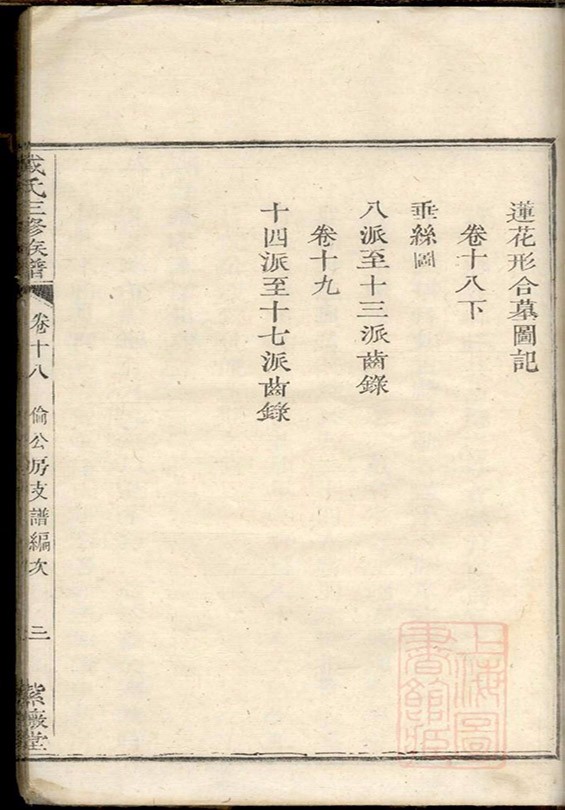 蓮花形合墓圖記
卷十八下
垂絲圖
八派至十三派齒錄
卷十九
十四派至十七派齒錄
氏三修族譜
卷十八
倫公房支譜編次
三
紫巖堂
上海圖書館藏